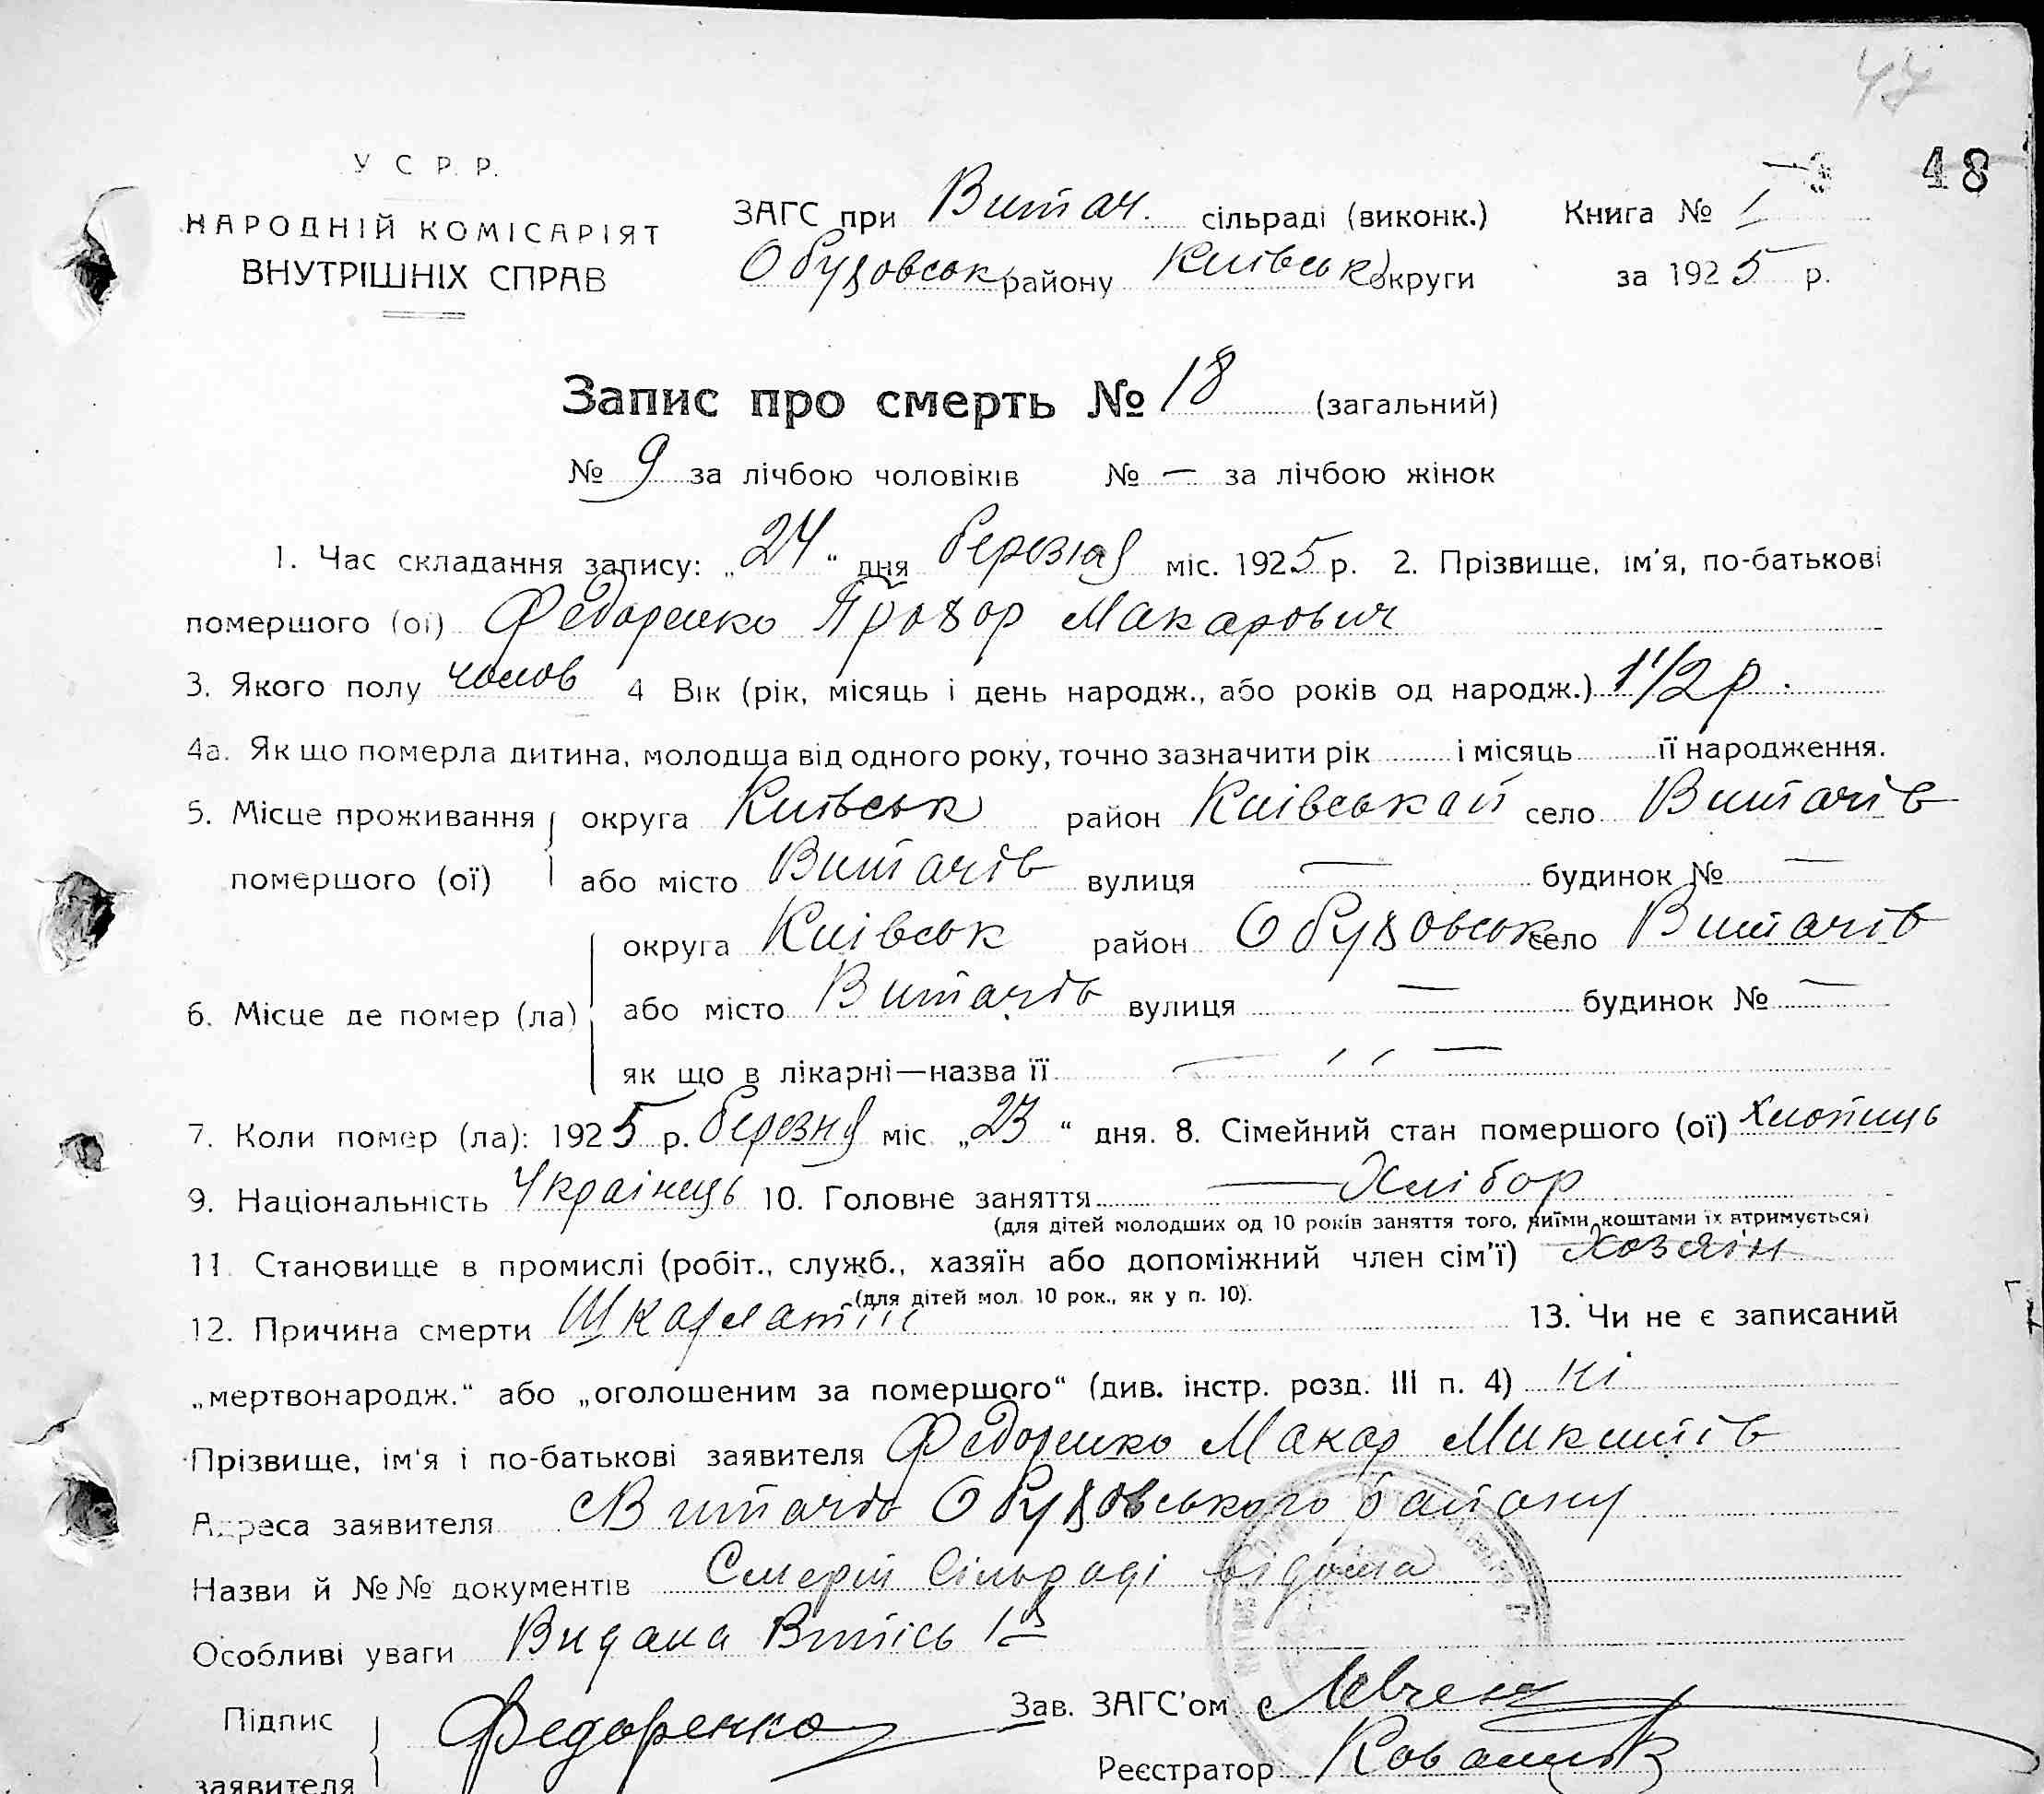 47
48
У С Р. Р.
НАРОДНІЙ КОМІСАРІЯТ
ВНУТРІШНІХ СПРАВ
ЗАГС при Витач. сільраді (виконк.) Книга № 1
Обуховськ району Київськ округи за 1925 р.
Запис про смерть № 18 (загальний)
№ 9 за лічбою чоловіків № — за лічбою жінок
1. Час складання запису: „24“ дня березня міс. 1925 р. 2. Прізвище, ім'я, по-батькові
помершого (ої) Федоренко Прохор Макарович
3. Якого полу чолов 4 Вік (рік, місяць і день народж., або років од народж.) 1 1/2 р.
4а. Як що померла дитина, молодща від одного року, точно зазначити рік і місяць її народження.
5. Місце проживання округа Київськ район Київський село Витачів
помершого (ої) або місто Витачів вулиця — будинок № —
округа Київськ район Обуховськ село Витачів
6. Місце де помер (ла) або місто Витачів вулиця — будинок № —
як що в лікарні—назва її — ,, —
7. Коли помер (ла): 1925 р. березня міс „23“ дня. 8. Сімейний стан помершого (ої) Хлопець
9. Національність Українець 10. Головне заняття — Хлібор
(для дітей молодших од 10 років заняття того, чиїми коштами їх втримується)
11 Становище в промислі (робіт., служб., хазяїн або допоміжний член сім'ї) Хозяін
(для дітей мол. 10 рок., як у п. 10).
12. Причина смерти Шкарлатіні 13. Чи не є записаний
„мертвонародж.“ або „оголошеним за помершого“ (див. інстр. розд. III п. 4) ні
Прізвище, ім'я і по-батькові заявителя Федоренко Макар Микитів
Адреса заявителя с Витачів Обуховського району
Назви й №№ документів Смерть Сільраді відома
Особливі уваги Видана Витісь 18
Підпис
заявителя Федоренко Зав. ЗАГС'ом
Реєстратор